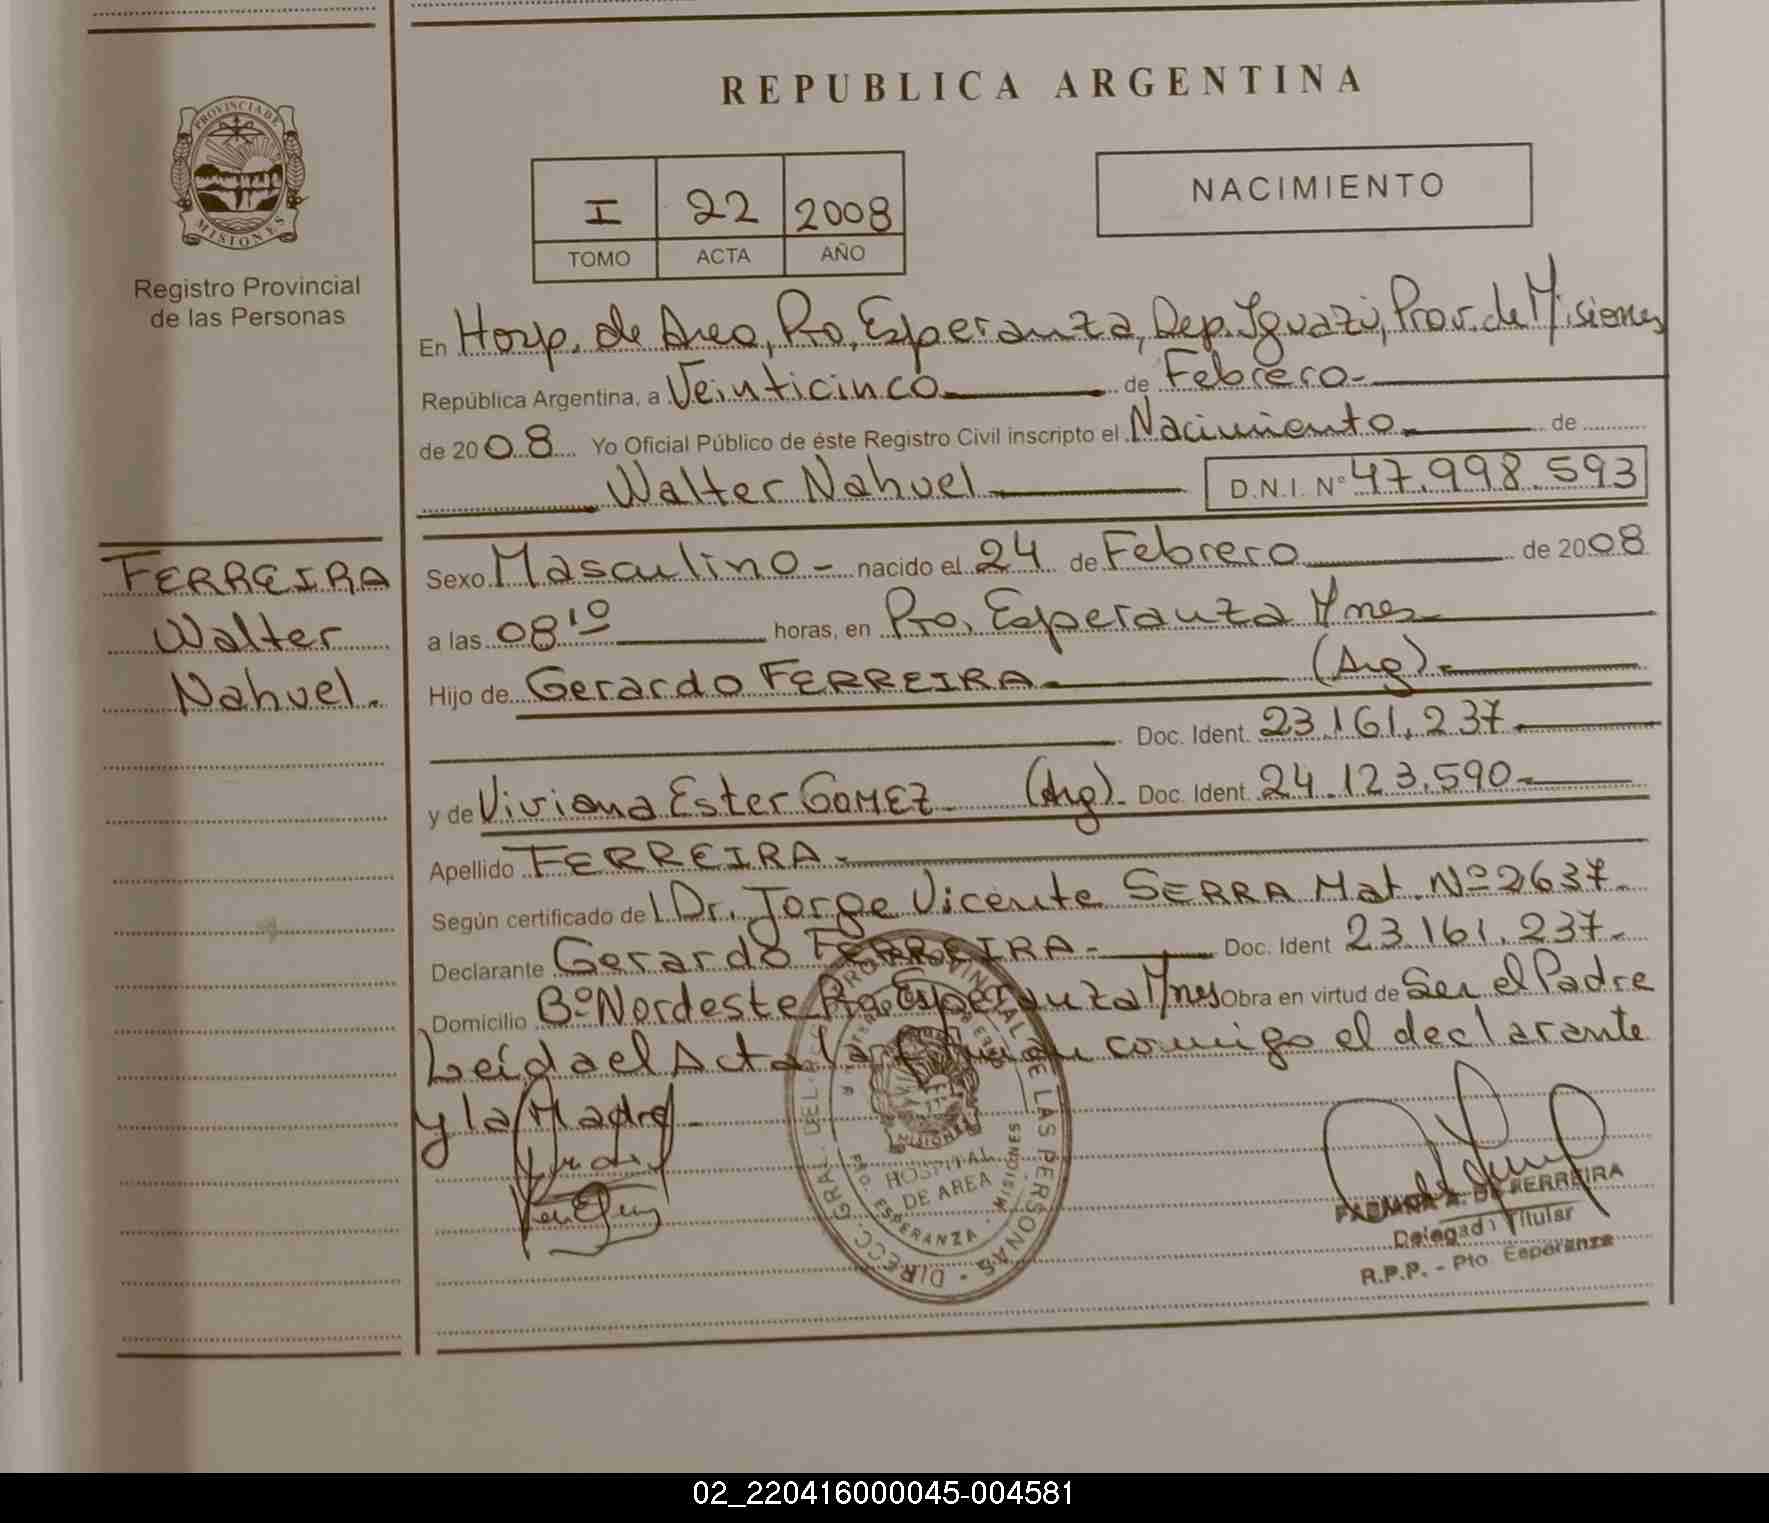 REPUBLICA ARGENTINA
PROVINCIA DE
MISIONES
Registro Provincial
de las Personas
I 22 2008
TOMO ACTA AÑO
NACIMIENTO
En Hosp. de Area, Pto, Esperanza, Dep. Iguazú, Prov. de Misiones
República Argentina, a Veinticinco de Febrero.-
de 2008 Yo Oficial Público de éste Registro Civil inscripto el Nacimiento de
Walter Nahuel D.N.I. Nº 47.998.593
FERREIRA
Walter
Nahuel.
Sexo Masculino - nacido el 24 de Febrero de 2008
a las 08 10 horas, en Pto, Esperanza Mnes
Hijo de Gerardo FERREIRA (Arg).-
Doc. Ident. 23.161.237-
y de Viviana Ester GOMEZ- (Arg)- Doc. Ident. 24.123.590-
Apellido FERREIRA-
Según certificado del Dr. Jorge Vicente SERRA Mat. Nº 2637-
Declarante Gerardo FERREIRA- Doc. Ident 23.161.237-
Domicilio Bº Nordeste Pto Esperanza Mnes Obra en virtud de Ser el Padre
Leída el Acta la firman conmigo el declarante
y la Madre-
DIRECC. GRAL. DEL PROVINCIAL DE LAS PERSONAS
MISIONES
HOSPITAL
DE AREA
PTO ESPERANZA - MISIONES
DE FERREIRA
Delegada Titular
R.P.P. - Pto Esperanza
02_220416000045-004581